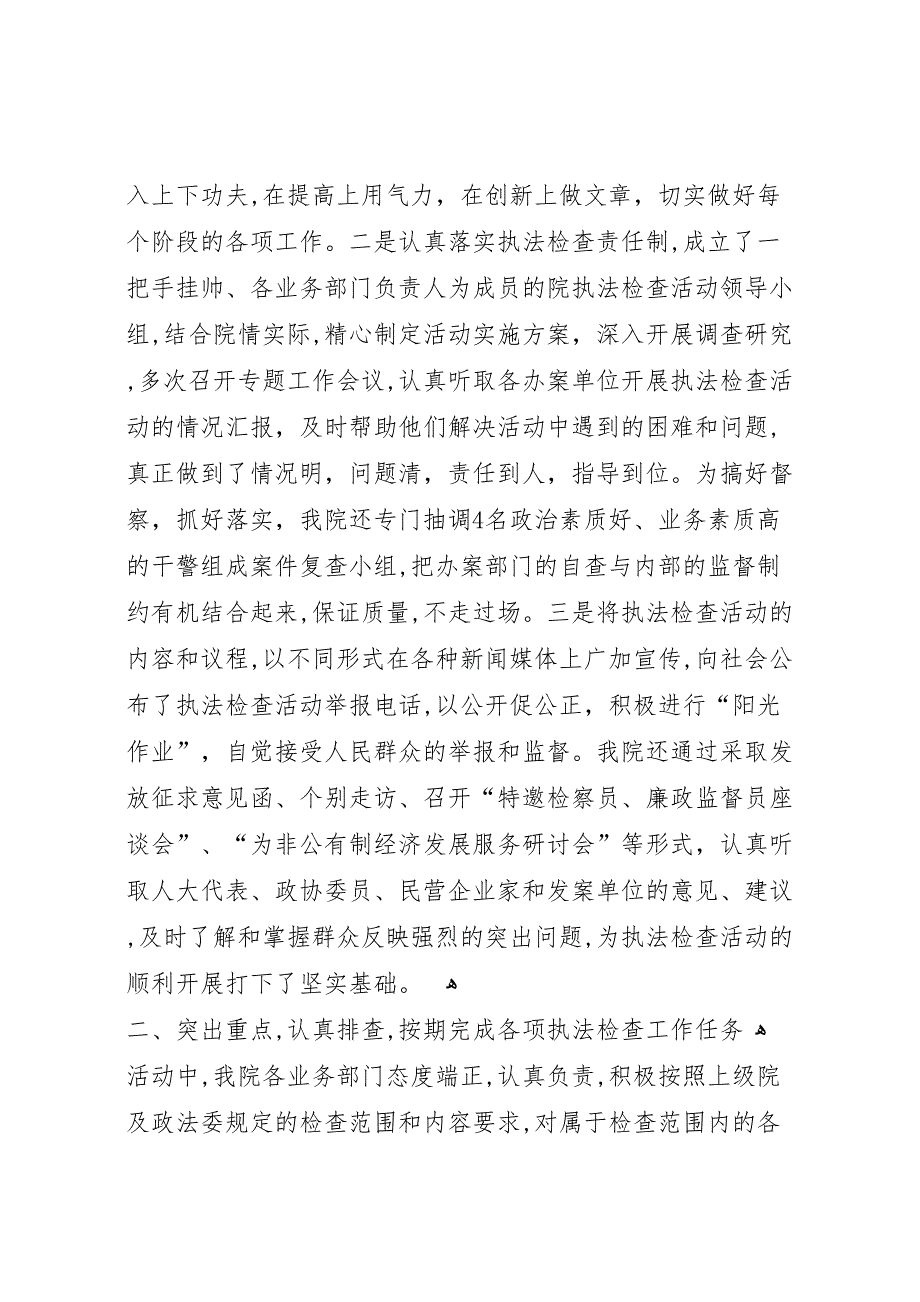 入上下功夫,在提高上用气力，在创新上做文章，切实做好每
个阶段的各项工作。二是认真落实执法检查责任制,成立了一
把手挂帅、各业务部门负责人为成员的院执法检查活动领导小
组,结合院情实际,精心制定活动实施方案，深入开展调查研究
,多次召开专题工作会议,认真听取各办案单位开展执法检查活
动的情况汇报，及时帮助他们解决活动中遇到的困难和问题,
真正做到了情况明，问题清，责任到人，指导到位。为搞好督
察，抓好落实，我院还专门抽调4名政治素质好、业务素质高
的干警组成案件复查小组,把办案部门的自查与内部的监督制
约有机结合起来,保证质量,不走过场。三是将执法检查活动的
内容和议程,以不同形式在各种新闻媒体上广加宣传,向社会公
布了执法检查活动举报电话,以公开促公正，积极进行“阳光
作业”，自觉接受人民群众的举报和监督。我院还通过采取发
放征求意见函、个别走访、召开“特邀检察员、廉政监督员座
谈会”、“为非公有制经济发展服务研讨会”等形式，认真听
取人大代表、政协委员、民营企业家和发案单位的意见、建议
,及时了解和掌握群众反映强烈的突出问题,为执法检查活动的
顺利开展打下了坚实基础。 ﻫ
二、突出重点,认真排查,按期完成各项执法检查工作任务 ﻫ
活动中,我院各业务部门态度端正,认真负责,积极按照上级院
及政法委规定的检查范围和内容要求,对属于检查范围内的各